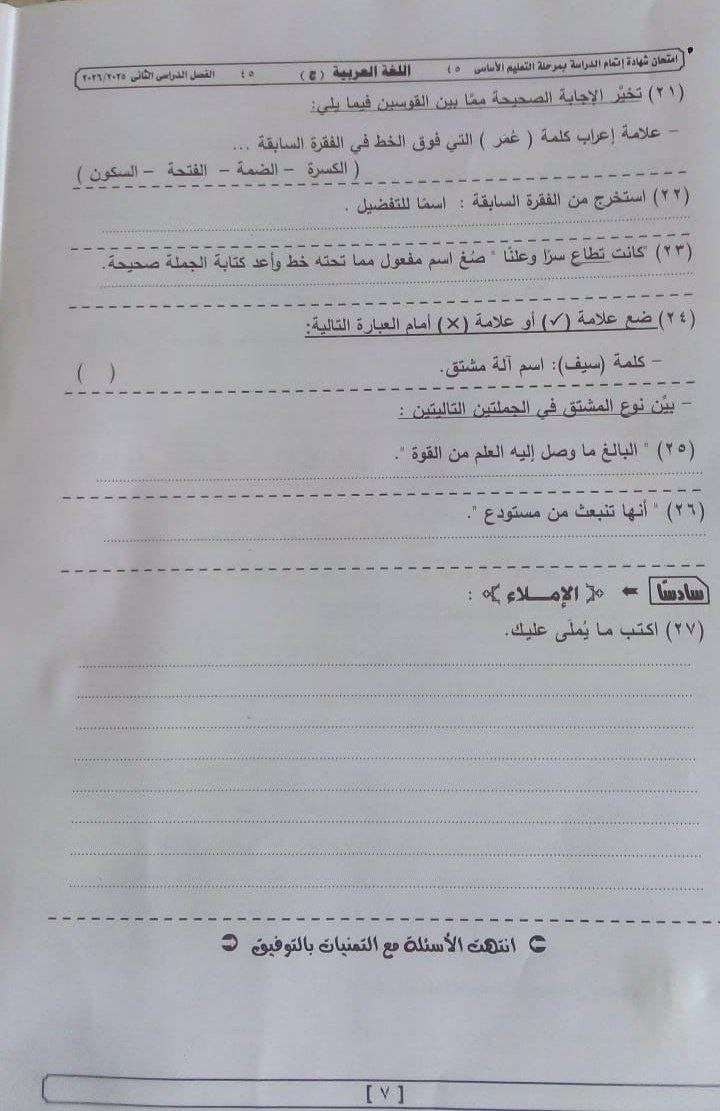 امتحان شهادة إتمام الدراسة بمرحلة التعليم الأساسى ٤٥ اللغة العربية (ج) ٤٥ الفصل الدراسى الثانى ٢٠٢٦/٢٠٢٥
(٢١) تخيَّر الإجابة الصحيحة ممَّا بين القوسين فيما يلي:
– علامة إعراب كلمة ( عُمَر ) التي فوق الخط في الفقرة السابقة ...
( الكسرة – الضمة – الفتحة – السكون )
(٢٢) استخرج من الفقرة السابقة : اسمًا للتفضيل .
(٢٣) "كانت تطاع سرًا وعلنًا " صُغ اسم مفعول مما تحته خط وأعد كتابة الجملة صحيحة.
(٢٤) ضع علامة (✓) أو علامة (✕) أمام العبارة التالية:
– كلمة (سيف): اسم آلة مشتق. ( )
– بيِّن نوع المشتق في الجملتين التاليتين :
(٢٥) " البالغ ما وصل إليه العلم من القوة ".
(٢٦) " أنها تنبعث من مستودع ".
سادسًا ← ﴿الإمـلاء﴾ :
(٢٧) اكتب ما يُملَى عليك.
انتهت الأسئلة مع التمنيات بالتوفيق
[ ٧ ]